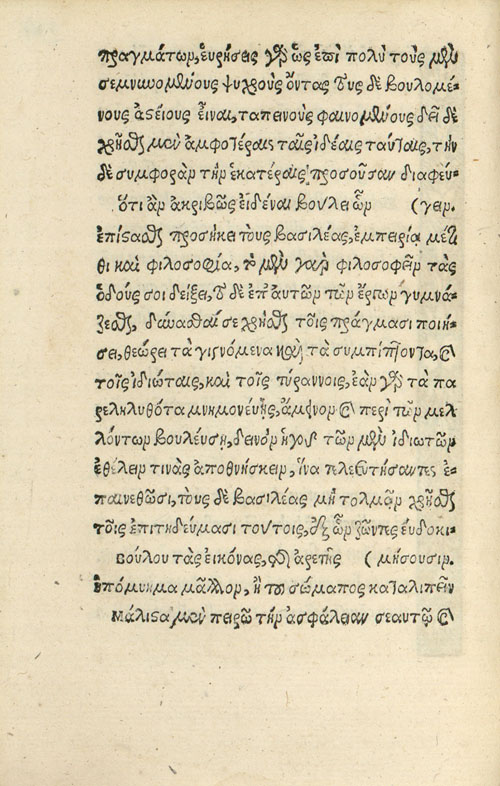 πραγμάτωρ, εὑρήσεις γὸ ὡς ἐπὶ πολὺ τοὺς μὲν
σεμνωομένους ψυχροὺς ὄντας τοὺς δὲ βουλομέ-
νους ἀςείους εἶναι, ταπεινοὺς φαινομένους δεῖ δὲ
χρῆσθαι μὲν ἀμφοτέραις ταῖς ἰδέαις ταύταις, τὴν
δὲ συμφορὰν τὴν ἑκατέραις προσοῦσαν διαφεύ-
ὅτι ἂν ἀκριβῶς εἰδέναι βουλειῶν (γειν.
ἐπίςασθαι προσήκει τοὺς βασιλέας, ἐμπειρίᾳ μέτ
θι καὶ φιλοσοφίᾳ, τὸ μὲν γὰρ φιλοσοφεῖν τὰς
ὁδούς σοι δείξει, τὸ δὲ ἐπ' αὐτῶν τῶν ἔργων γυμνά-
ζεσθαι, δύνασθαί σε χρῆσθαι τοῖς πράγμασι ποιή-
σει, θεώρει τὰ γιγνόμενα καὶ τὰ συμπίπτοντα, καὶ
τοῖς ἰδιώταις, καὶ τοῖς τυράννοις, ἐὰν γὸ τὰ πα
ρεληλυθότα μνημονεύῃς, ἄμεινον καὶ περὶ τῶν μελ
λόντων βουλεύσῃ, δεινὸν ἡγοῦ τῶν μὲν ἰδιωτῶν
ἐθέλειν τινὰς ἀποθνήσκειν, ἵνα τελευτήσαντες ἐ-
παινεθῶσι, τοὺς δὲ βασιλέας μὴ τολμᾶν χρῆσθαι
τοῖς ἐπιτηδεύμασι τούτοις, ἐξ ὧν ζῶντες εὐδοκι-
βούλου τὰς εἰκόνας, τῆς ἀρετῆς (μήσουσιν.
ὑπόμνημα μᾶλλον, ἢ τοῦ σώματος καταλιπεῖν
μάλιςα μὲν πειρῶ τὴν ἀσφάλειαν σεαυτῷ καὶ